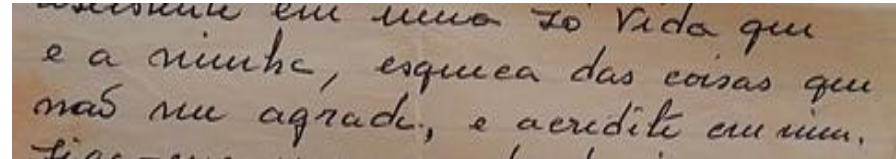 em uma só vida que
e a minha, esqueca das coisas que
não me agrade, e acredite em mim.